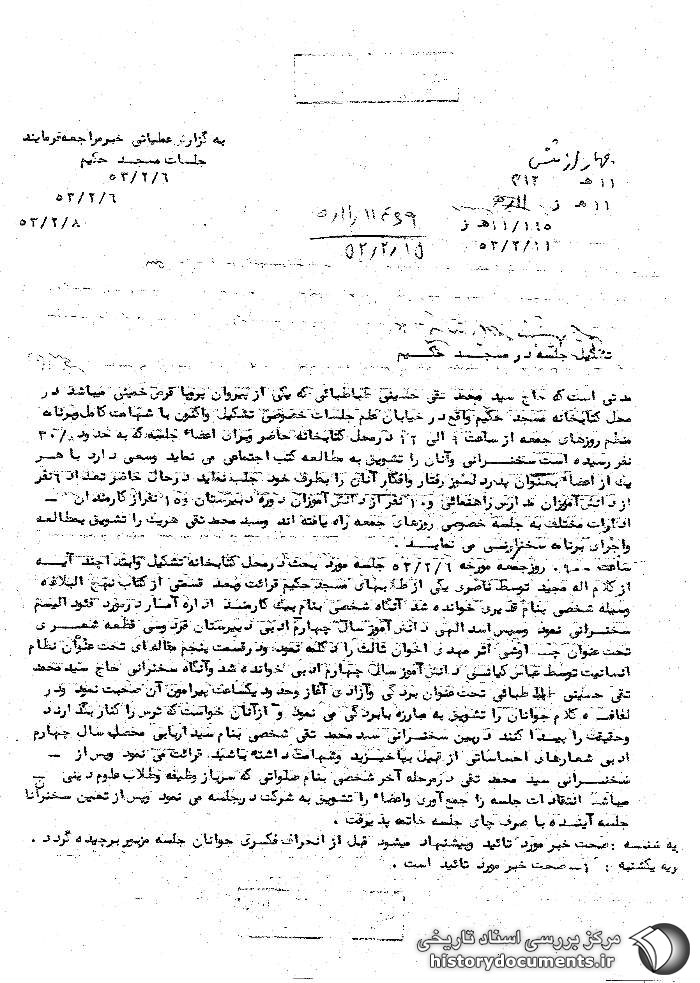 به گزارش عملیاتی خبر مراجعه فرمایند
جلسات مسجد حکیم
۵۳/۲/۶
۵۳/۲/۶
۵۳/۲/۸
۱۱ هـ ۳۱۲
۱۱ هـ ز
۱۱/۱۱۵ هـ ز
۵۳/۲/۱۱
۵۳/۲/۱۵
تشکیل جلسه در مسجد حکیم
مدتی است که حاج سید محمد تقی حسینی طباطبائی که یکی از پیروان پروپا قرص خمینی میباشد در
محل کتابخانه مسجد حکیم واقع در خیابان جلسات خصوصی تشکیل واکنون با شهامت کامل وبرنامه
منظم روزهای جمعه از ساعت ۹ الی ۱۲ در محل کتابخانه حاضر وبرای اعضاء جلسه که به حدود ۳۰
نفر رسیده است سخنرانی وآنان را تشویق به مطالعه کتب اجتماعی می نماید وسعی دارد با هر
یک از اعضاء بعنوان پدر رفتار وافکار آنان را بطرف خود جلب نماید در حال حاضر تعداد ۶ نفر
از دانش آموزان مدارس راهنمائی و ۱۰ نفر از دانش آموزان دوره دبیرستان و ۱۵ نفر از کارمندان –
ادارات مختلف به جلسه خصوصی روزهای جمعه راه یافته اند وسید محمد تقی هریک را تشویق بمطالعه
واجرای برنامه سخنرانی می نماید .
ساعت ۹۰۰ روز جمعه مورخه ۵۳/۲/۶ جلسه مورد بحث در محل کتابخانه تشکیل وابتدا چند آیه
از کلام اله مجید توسط ناصری یکی از طلبه های مسجد حکیم قرائت وبعد قسمتی از کتاب نهج البلاغه
وسیله شخصی بنام قدیری خوانده شد آنگاه شخصی بنام بیک کارمند اداره آمار در مورد فئود الیسم
سخنرانی نمود وسپس اسد الهی دانش آموز سال چهارم ادبی دبیرستان فردوسی قطعه شعری
تحت عنوان چاوشی اثر مهدی اخوان ثالث را دکلمه نمود ودر قسمت پنجم مقاله ای تحت عنوان نظام
انسانیت توسط عباس کیانی دانش آموز سال چهارم ادبی خوانده شد وآنگاه سخنرانی حاج سید محمد
تقی حسینی طباطبائی تحت عنوان بردگی وآزادی آغاز وحدود یکساعت پیرامون آن صحبت نمود ودر
لفافه کلام جوانان را تشویق به مبارزه با بردگی می نمود و از آنان خواست که ترس را کنار بگذارند
وحقیقت را پیدا کنند در بین سخنرانی سید محمد تقی شخصی بنام سید اربابی محصل سال چهارم
ادبی شعارهای احساساتی از قبیل بپاخیزید وشهامت داشته باشید قرائت می نمود وپس از –
سخنرانی سید محمد تقی در مرحله آخر شخصی بنام صلواتی که سرباز وظیفه وطلاب علوم دینی –
میباشد انتقادات جلسه را جمع آوری واعضاء را تشویق به شرکت در جلسه می نمود وپس از تعیین سخنران
جلسه آینده با صرف چای جلسه خاتمه پذیرفت .
یه شنبه : صحت خبر مورد تائید وپیشنهاد میشود قبل از انحراف فکری جوانان جلسه مزبور برچیده گردد .
ویه یکشنبه : صحت خبر مورد تائید است .
مرکز بررسی اسناد تاریخی
historydocuments.ir